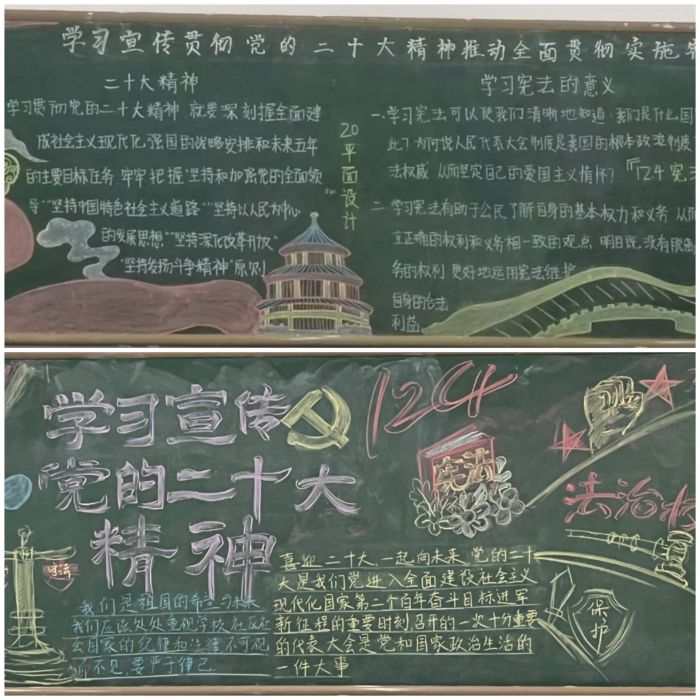 学习宣传贯彻党的二十大精神推动全面贯彻实施
二十大精神
学习贯彻党的二十大精神 就要深刻握全面建
成社会主义现代化强国的战略安排和未来五年
的主要目标任务 牢牢把握"坚持和加强党的全面领
导""坚持中国特色社会主义道路""坚持以人民为中心
的发展思想""坚持深化改革开放"
"坚持发扬斗争精神"原则
20平面设计
学习宪法的意义
一、学习宪法可以使我们清晰地知道:我们是什么国
此?为何说人民代表大会制度是我国的根本政治制度
法权威 从而坚定自己的爱国主义情怀?
「124宪法
二、学习宪法有助于公民了解自身的基本权力和义务 从而
立正确的权利和义务相一致的观点 明白既没有脱离
务的权利 更好地运用宪法维护
自身的合法
利益
学习宣传
党的二十大
精神
124
宪法
法治
守法
保护
我们是祖国的希望与未来
我们应该处处重视学校
去国家的纪律和法律不可视
而不见,要严于律己
喜迎二十大,一起向未来,党的二十
大是我们党进入全面建设社会主义
现代化国家第二个百年奋斗目标进军
新征程的重要时刻召开的一次十分重要
的代表大会是党和国家政治生活的
一件大事